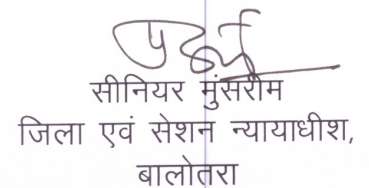 सीनियर मुंसरीम
जिला एवं सेशन न्यायाधीश,
बालोतरा